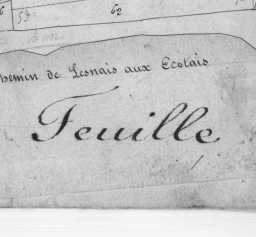 62
hemin de Lesnais aux Ecotais
Feuille